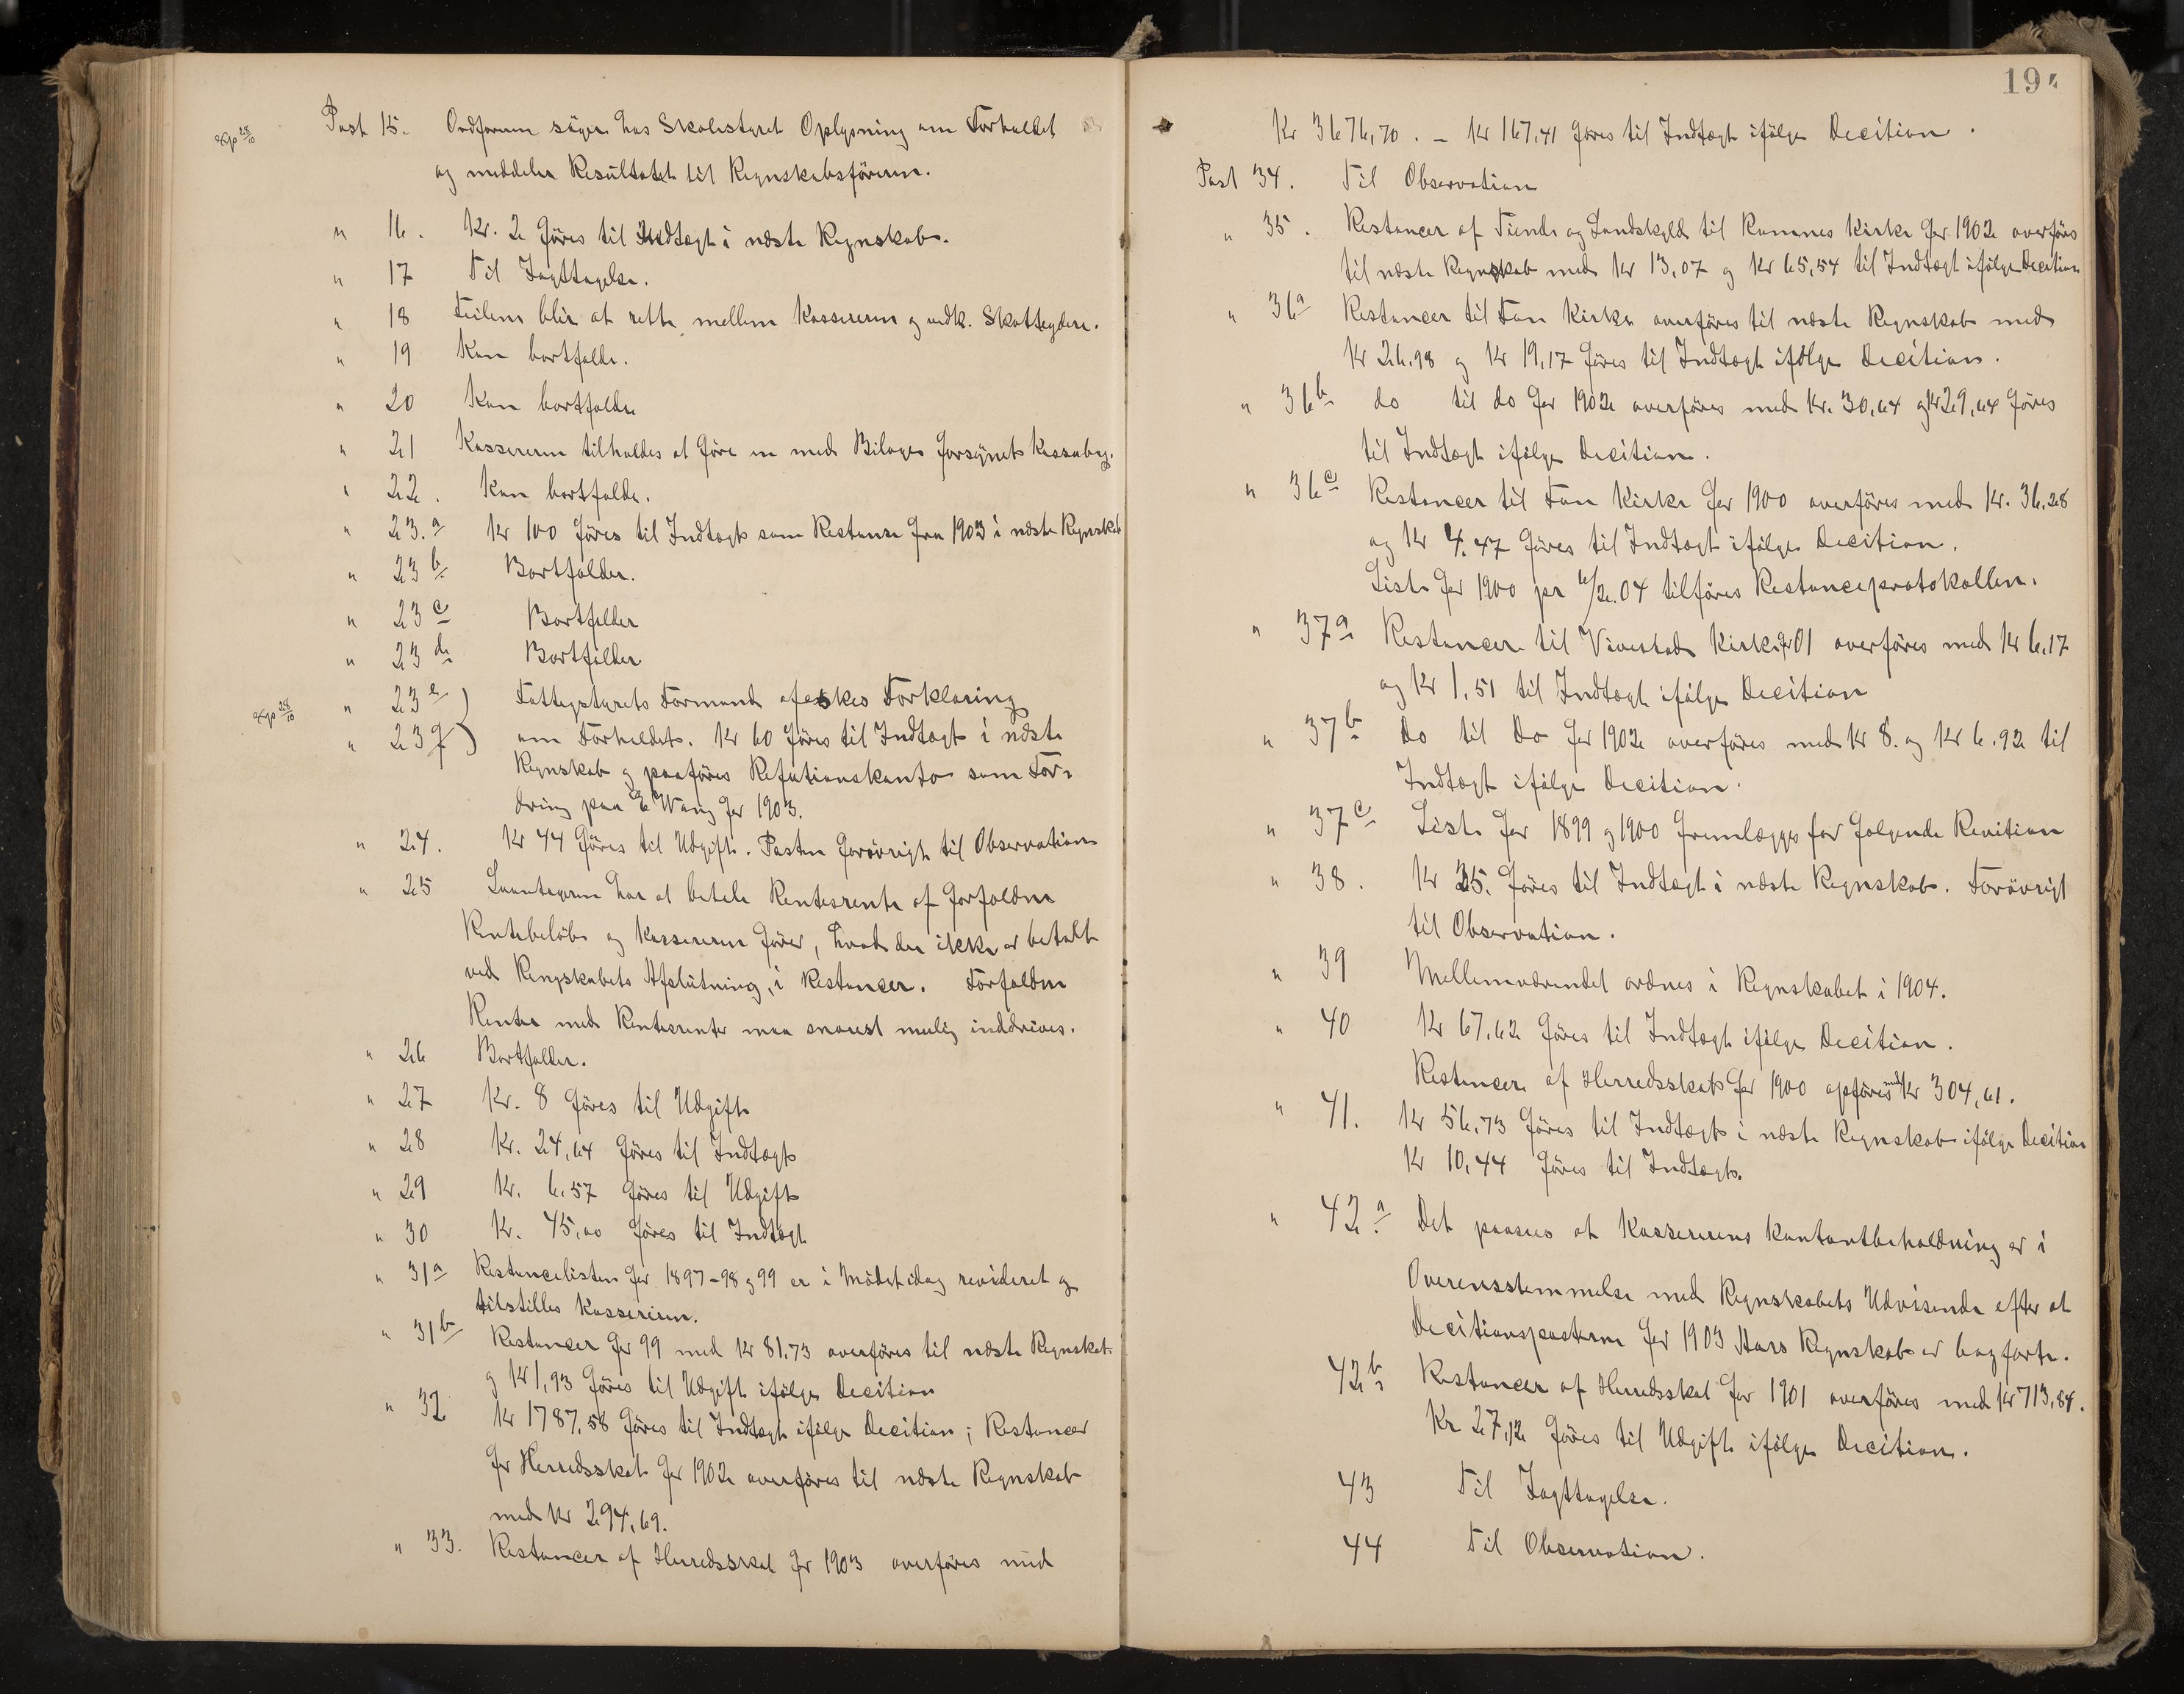 Exp 28/10
Post 15. Ordføreren søger hos Skolestyret Oplysning om Forholdet
og meddeler Resultatet til Regnskabsføreren.
" 16. Kr. 2 føres til Indtægt i næste Regnskab.
" 17 Til Iagttagelse.
" 18 Feilen blir at rette mellem Kassereren og vedk. Skatteydere.
" 19 Kan bortfalde.
" 20 Kan bortfalde
" 21 Kassereren tilholdes at føre en med Bilager forsynet Kassabog.
" 22. Kan bortfalde.
" 23.a Kr 100 føres til Indtægt som Restanse fra 1903 i næste Regnskab
" 23 b Bortfalder.
" 23 c Bortfalder
" 23 d Bortfalder
Exp 28/10
" 23 e) Fattigstyrets Formand afæskes Forklaring
" 23 f) om Forholdet. Kr 60 føres til Indtægt i næste
Regnskab og paaføres Refutionskonto som For-
dring paa E Wang for 1903.
" 24. Kr 44 føres til Udgift. Posten forøvrigt til Observation
" 25 Laantageren har at betale Rentesrente af forfaldne
Rentebeløb og Kassereren fører, hvad der ikke er betalt
ved Rengskabets Afslutning, i Restancer. Forfaldne
Renter med Rentesrenter maa snarest mulig inddrives.
" 26 Bortfalder.
" 27 Kr. 8 føres til Udgift
" 28 Kr. 24,64 føres til Indtægt
" 29 Kr. 6.57 føres til Udgift
" 30 Kr. 45,00 føres til Indtægt
" 31a Restancelisten for 1897-98 og 99 er i Mødet idag revideret og
tilstilles Kassereren.
" 31b Restancer for 99 med Kr 81.73 overføres til næste Regnskab
og Kr 1,93 føres til Udgift ifølge Decition
" 32 Kr 1787,58 føres til Indtægt ifølge Decition; Restancer
for Herredsskat for 1902 overføres til næste Regnskab
med Kr 294,69.
" 33. Restancer af Herredsskat for 1903 overføres med
194
Kr 3676,70. - Kr 167,41 føres til Indtægt ifølge Decition.
Post 34. Til Observation
" 35. Restancer af Tiende og Landskyld til Ramnes Kirke for 1902 overføres
til næste Regnskab med Kr 13,07 og Kr 65,54 til Indtægt ifølge Decition
" 36a Restancer til Fon Kirke overføres til næste Regnskab med
Kr 26.98 og Kr 19,17 føres til Indtægt ifølge Decition.
" 36b do til do for 1902 overføres med Kr. 30,64 og Kr 29,64 føres
til Indtægt ifølge Decition.
" 36c Restancer til Fon Kirke for 1900 overføres med Kr. 36.28
og Kr 4.47 føres til Indtægt ifølge Decition.
Liste for 1900 pr 6/2.04 tilføres Restanceprotokollen.
" 37a Restancer til Vivestad Kirke for 01 overføres med Kr 6.17
og Kr 1,51 til Indtægt ifølge Decition
" 37b Do til Do for 1902 overføres med Kr 8. og Kr 6.92 til
Indtægt ifølge Decition.
" 37c Liste for 1899 og 1900 fremlægges for følgende Revition
" 38. Kr 35. føres til Indtægt i næste Regnskab. Forøvrigt
til Observation.
" 39 Mellemværendet ordnes i Regnskabet i 1904.
" 40 Kr 67.62 føres til Indtægt ifølge Decition.
Restancer af Herredsskat for 1900 opføres med Kr 304,61.
" 41. Kr 56,73 føres til Indtægt i næste Regnskab ifølge Decition
Kr 10,44 føres til Indtægt.
" 42.a Det paasees at Kassererens Kontantbeholdning er i
Overensstemmelse med Regnskabets Udvisende efter at
Decitionsposterne for 1903 Aars Regnskab er bogførte.
42b Restancer af Herredsskat for 1901 overføres med Kr 713,84.
Kr 27,12 føres til Udgift ifølge Decition.
43 Til Iagttagelse.
44 Til Observation.